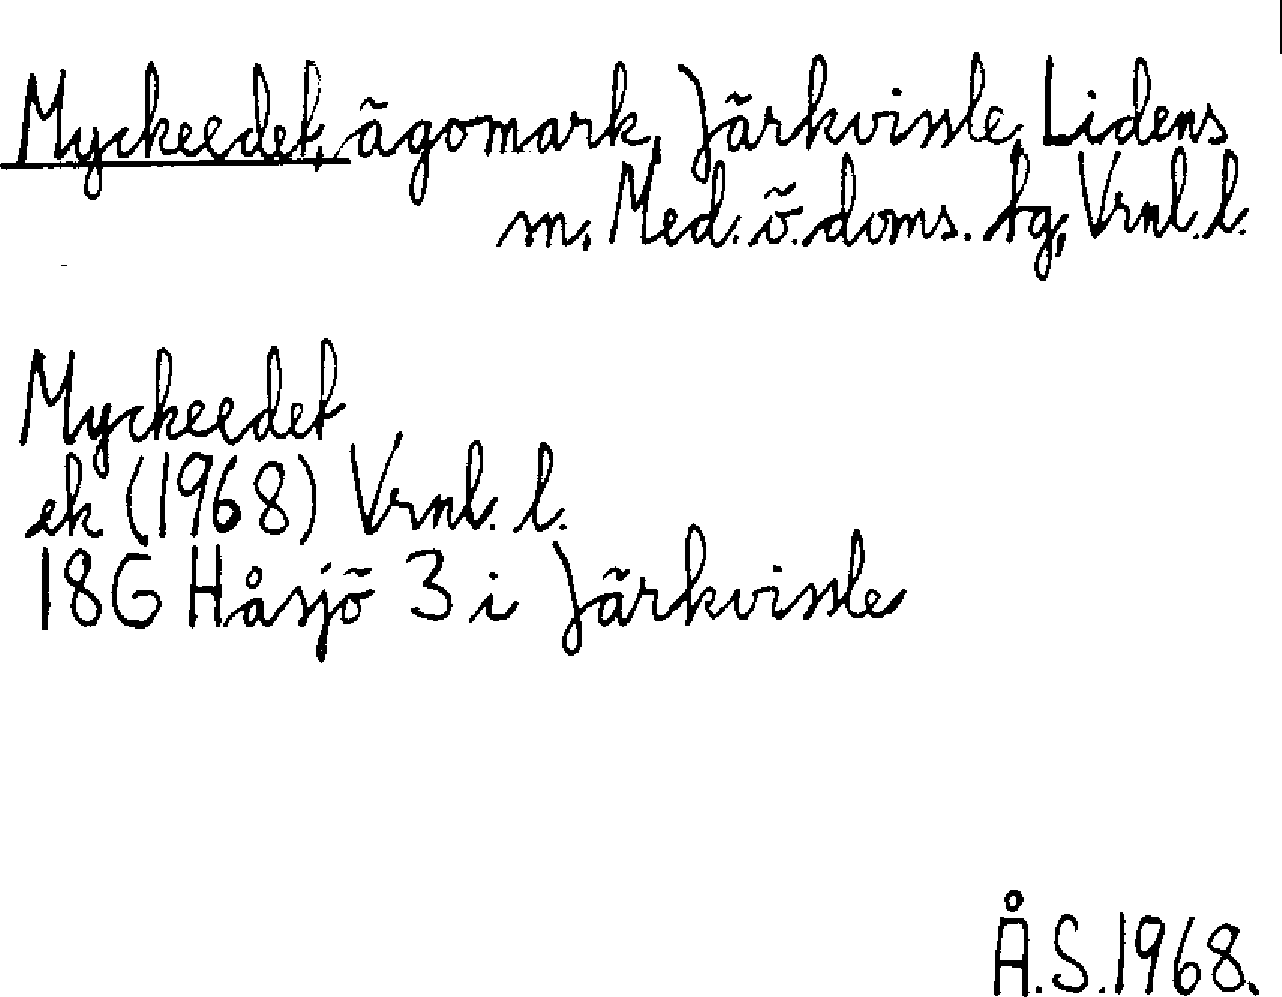 Myckeedet, ägomark, Järkvissle, Lidens
m. Med. ö. doms. tg, Vrnl. l.
Myckeedet
ek (1968) Vrnl. l.
18G Håsjö 3 i Järkvissle
Å.S. 1968.